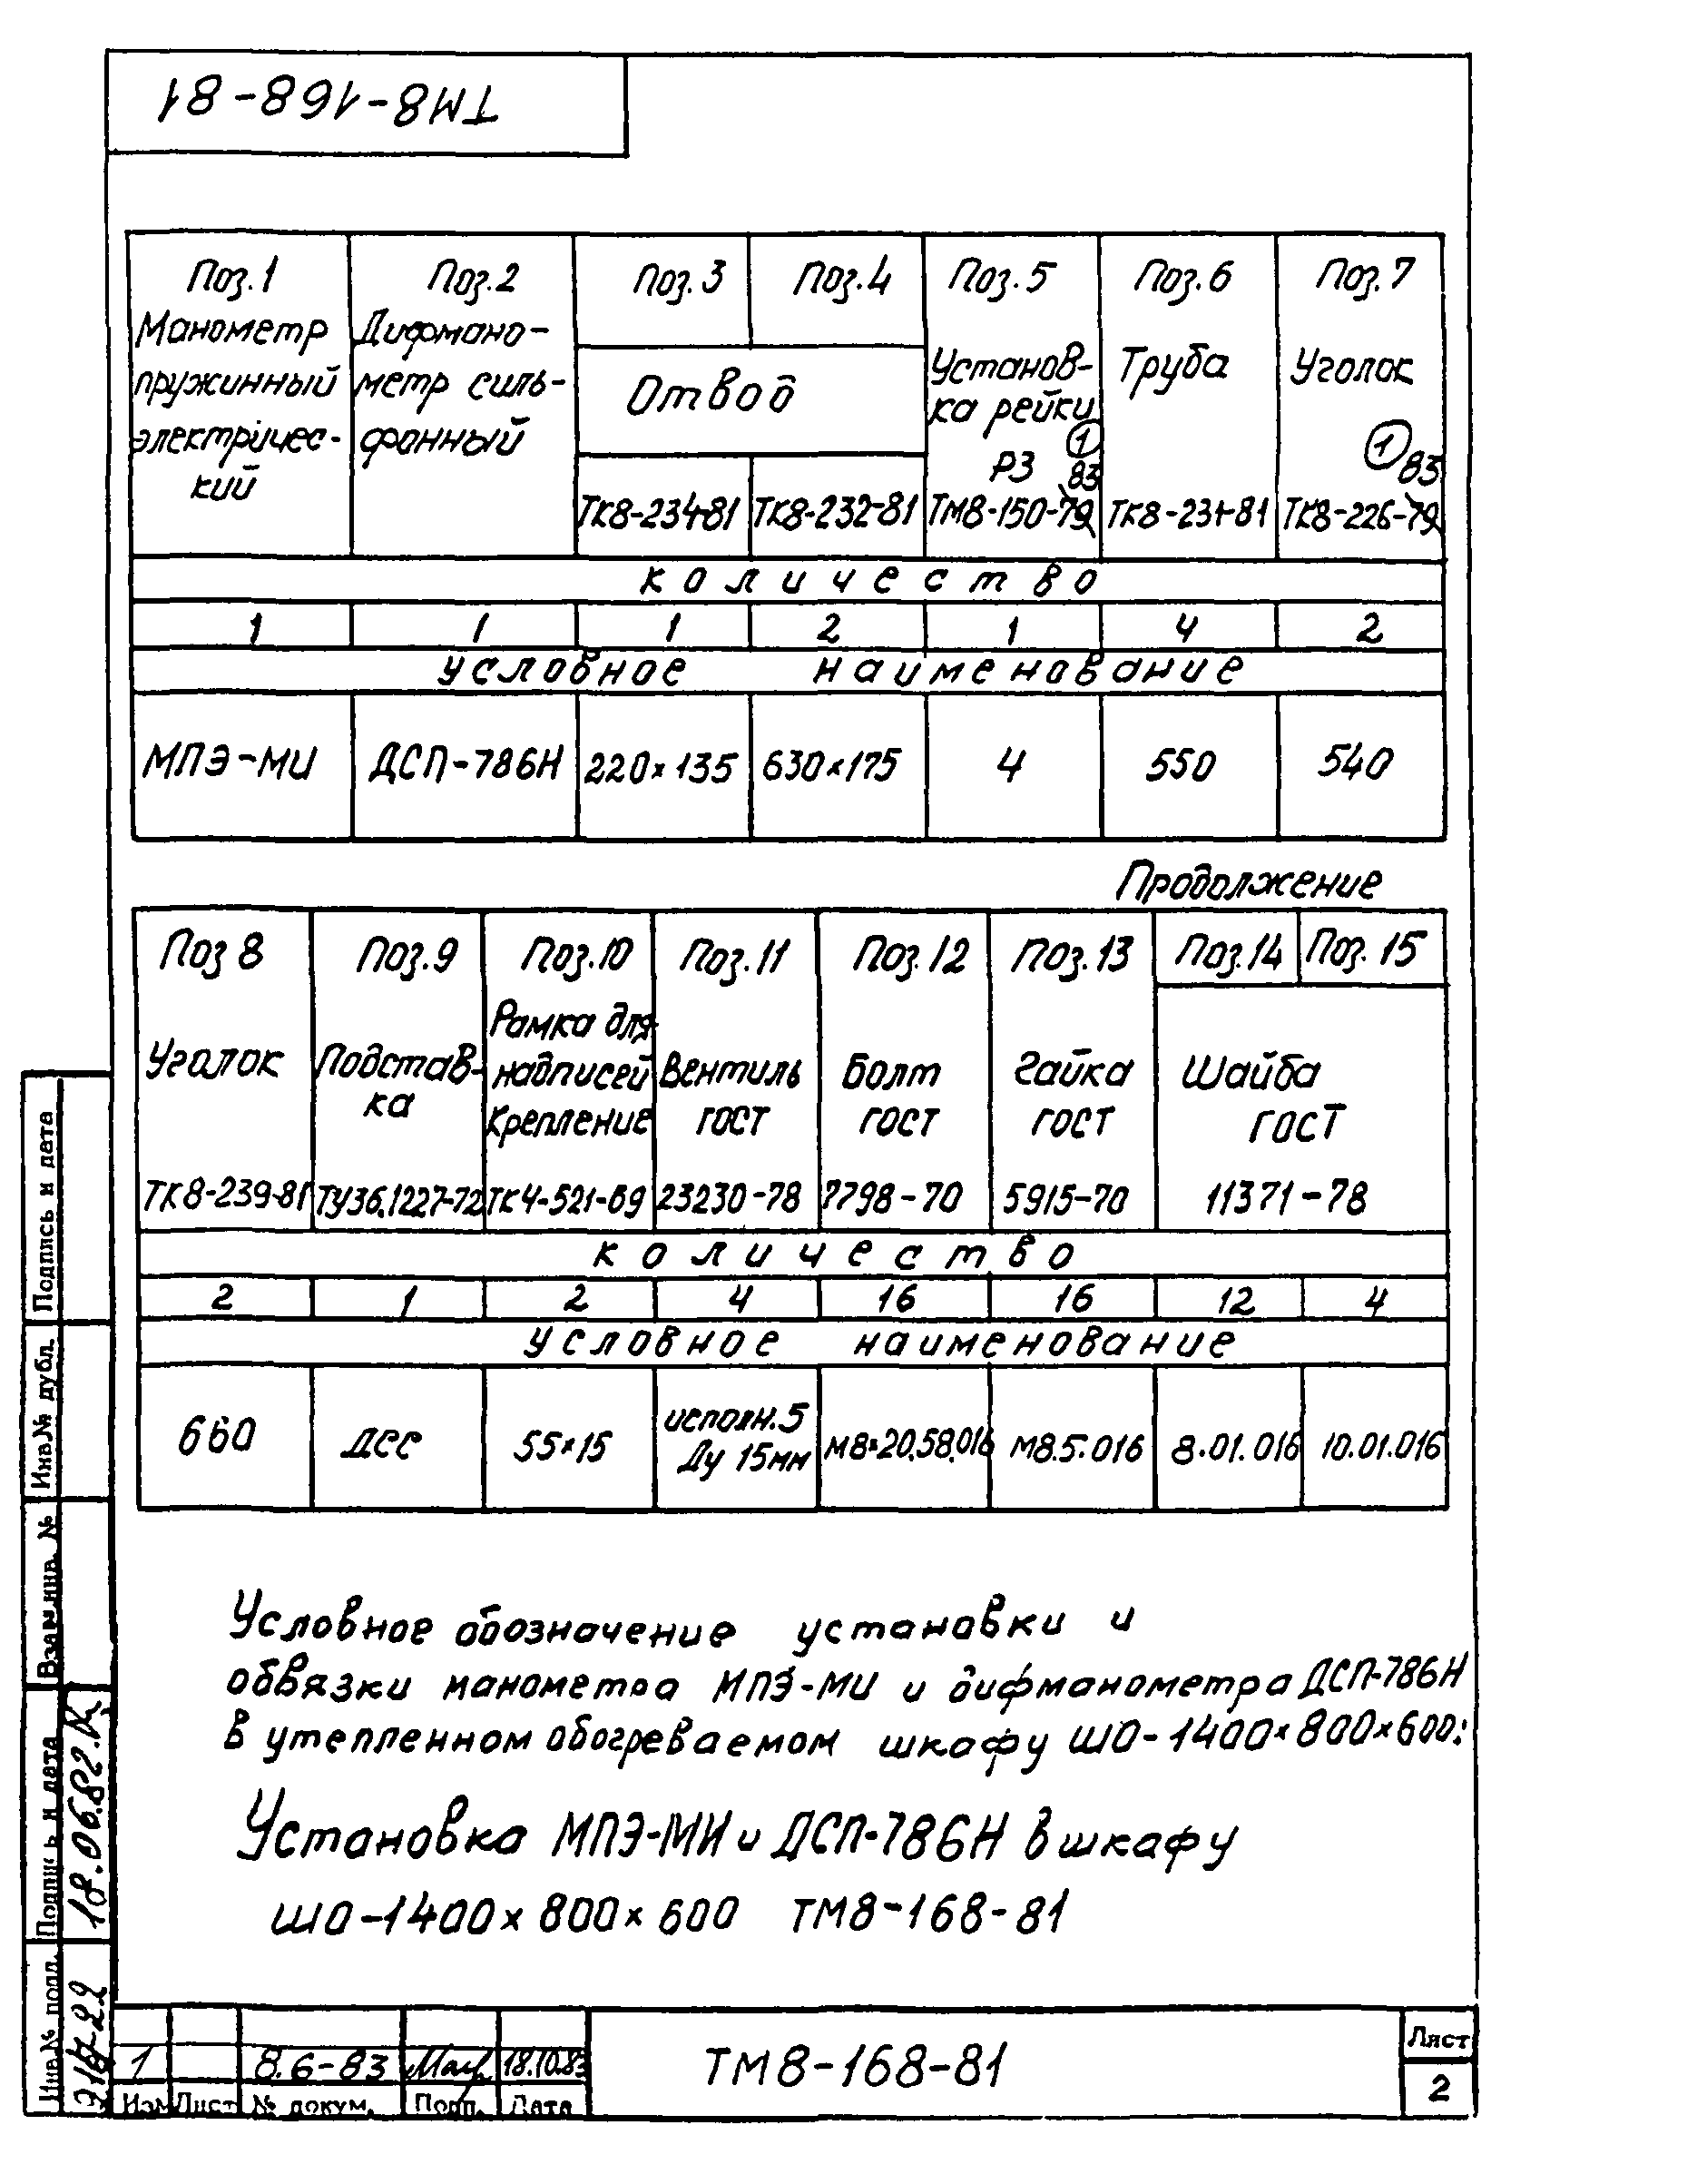 ТМ8-168-81
Поз.1 Поз.2 Поз.3 Поз.4 Поз.5 Поз.6 Поз.7
Манометр пружинный электричес-кий
Дифмано-метр силь-фонный
Отвод
Установ-ка рейки РЗ
Труба
Уголок
① 83 ① 83
ТК8-234-81 ТК8-232-81 ТМ8-150-79 ТК8-231-81 ТК8-226-79
количество
1 1 1 2 1 4 2
условное наименование
МПЭ-МИ ДСП-786Н 220×135 630×175 4 550 540
Продолжение
Поз 8 Поз.9 Поз.10 Поз.11 Поз.12 Поз.13 Поз.14 Поз.15
Уголок
Подстав-ка
Рамка для надписей Крепление
Вентиль ГОСТ
Болт ГОСТ
Гайка ГОСТ
Шайба ГОСТ
ТК8-239-81 ТУ36.1227-72 ТК4-521-69 23230-78 7798-70 5915-70 11371-78
количество
2 1 2 4 16 16 12 4
условное наименование
660 ДСС 55×15 исполн.5 Ду 15мм М8×20.58.016 М8.5.016 8.01.016 10.01.016
Условное обозначение установки и
обвязки манометра МПЭ-МИ и дифманометра ДСП-786Н
в утепленном обогреваемом шкафу ШО-1400×800×600:
Установка МПЭ-МИ и ДСП-786Н в шкафу
ШО-1400×800×600 ТМ8-168-81
Подпись и дата
Инв№ дубл.
Взам инв. №
Подпись и дата
18.06.82
Инв№ подл.
1 8.6-83 18.10.83
Изм Лист № докум. Подп. Дата
ТМ8-168-81
Лист
2